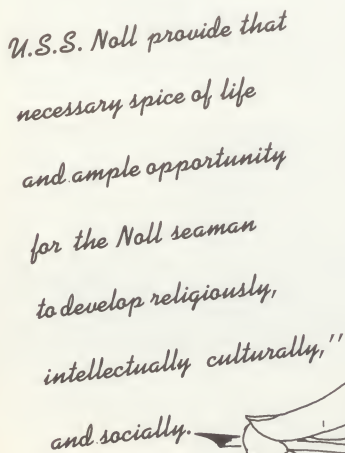 U.S.S. Noll provide that
necessary spice of life
and ample opportunity
for the Noll seaman
to develop religiously,
intellectually culturally,"
and socially.